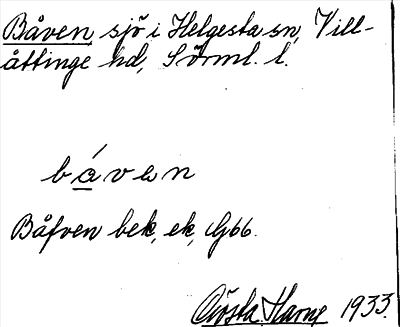 Båven, sjö i Helgesta sn, Vill-
åttinge hd, Sörml. l.
båven
Båfven bek, ek, G66.
Gösta Harne 1933.